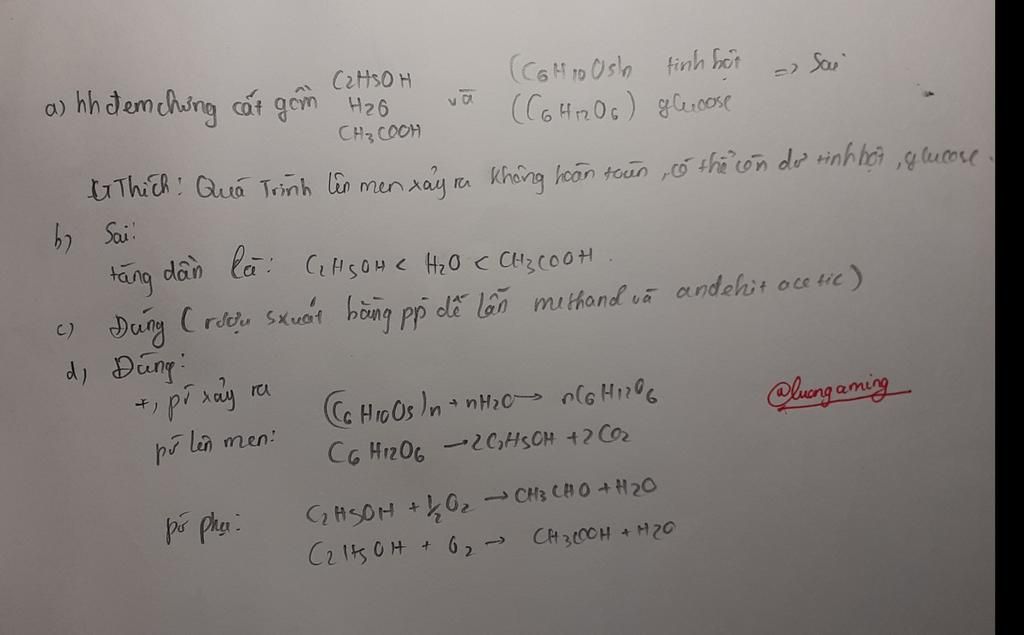 a) hh đem chưng cất gồm C2H5OH H2O CH3COOH và (C6H10O5)n tinh bột (C6H12O6) glucose => Sai
GThích: Quá Trình lên men xảy ra không hoàn toàn, có thể còn dư tinh bột, glucose.
b) Sai:
tăng dần là: C2H5OH < H2O < CH3COOH.
c) Đúng (rượu sxuất bằng pp dễ lẫn methanol và andehit acetic)
d) Đúng:
+, pứ xảy ra (C6H10O5)n + nH2O → nC6H12O6
pứ lên men: C6H12O6 → 2C2H5OH + 2CO2
pứ phụ: C2H5OH + ½O2 → CH3CHO + H2O
C2H5OH + O2 → CH3COOH + H2O
@luongaming